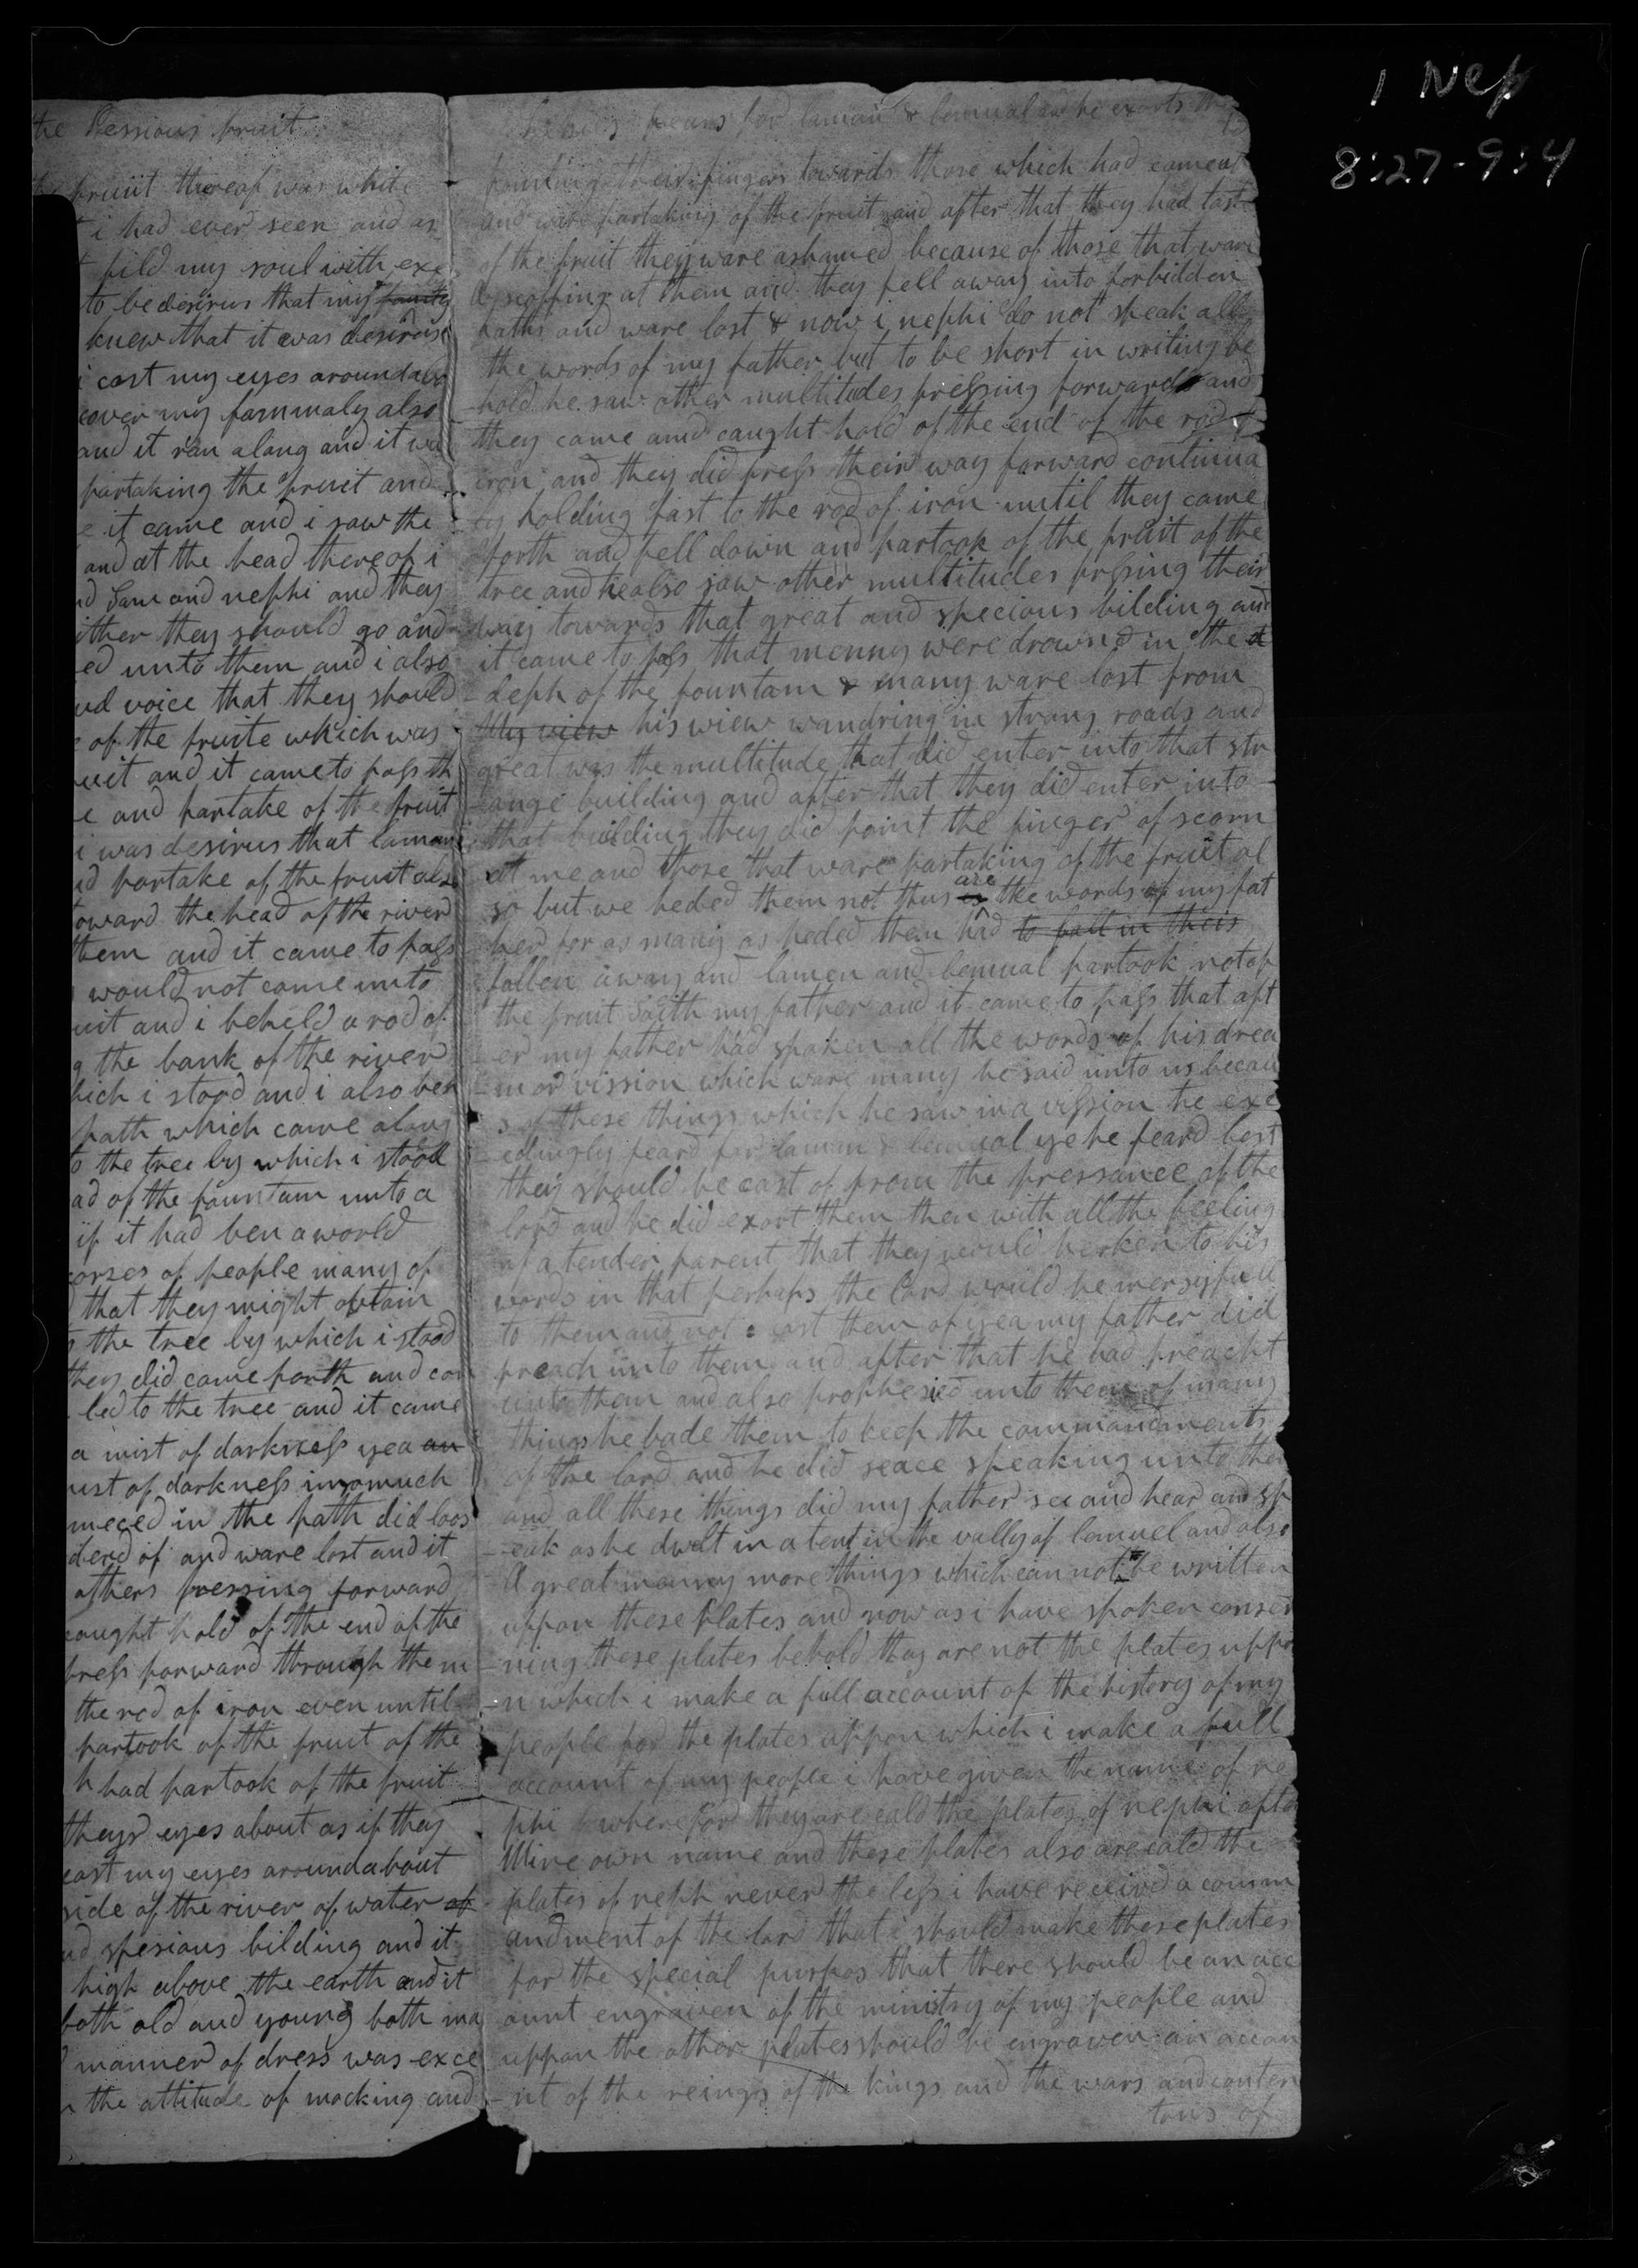 1 Nep
8:27-9:4
the Pressious fruit
fruiit thereof was white
i had ever seen and as
fild my soul with exe
to be desirus that my family
knew that it was desirus
i cast my eyes around abo
cover my fammaly also
and it ran along and it wa
partaking the fruit and
it came and i saw the
and at the head thereof i
nd Sam and nephi and they
ither they should go and
ed unto them and i also
ud voice that they should
of the fruite which was
uit and it came to pass th
e and partake of the fruit
i was desirus that laman
nd partake of the fruit also
toward the head of the river
them and it came to pass
would not come unto
uit and i beheld a rod of
g the bank of the river
hich i stood and i also beh
path which came along
to the tree by which i stood
ad of the fountain unto a
if it had ben a world
corses of people many of
that they might obtain
the tree by which i stood
they did come forth and com
led to the tree and it came
a mist of darkness yea an
ist of darkness insomuch
meced in the path did loos
derd of and ware lost and it
others pressing forward
caught hold of the end of the
press forward through the m
the rod of iron even until
partook of the fruit of the
h had partook of the fruit
theyr eyes about as if they
cast my eyes around about
side of the river of water of
nd spesious bilding and it
high above the earth and it
both old and young both ma
manner of dress was exce
the attitude of mocking and
fears for laman & lemual and he exorts
pointing their fingers towards those which had come at
and ware partaking of the fruit and after that they had tast
of the fruit they ware ashamed because of those that ware
scoffing at them and they fell away into forbidden
paths and ware lost & now i nephi do not speak all
the words of my father but to be short in writing be
-hold he saw other multitudes pressing forward and
they came and caught hold of the end of the rod of
iron and they did press their way forward continua
ly holding fast to the rod of iron until they came
forth and fell down and partook of the fruit of the
tree and he also saw other multitudes prssing their
way towards that great and specious bilding and
it came to pass that menny were drownd in the d
-deph of the fountain & many ware lost from
my view his view wandring in strang roads and
great was the multitude that did enter into that str
-ange building and after that they did enter into
that building they did point the finger of scorn
at me and those that ware partaking of the fruit al
so but we heded them not thus is are the words of my fat
her for as many as heded them had to fall in theis
fallen away and lamen and lemual partook not of
the fruit saith my father and it came to pass that aft
-er my father had spoken all the words of his drea
-m or vission which ware many he said unto us becau
s of these things which he saw in a vission he exe
-edingly feard for laman & lemual ye he feard lest
they should be cast of from the pressance of the
lord and he did exort them then with all the feeling
of a tender parent that they would herken to his
words in that perhaps the Lord would be mersyfull
to them and not cast them of yea my father did
preach unto them and after that he had preacht
unto them and also prophesied unto them of many
things he bade them to keep the commandments
of the lord and he did seace speaking unto them
and all these things did my father see and hear and sp
-eak as he dwelt in a tent in the vally of lemuel and also
A great menny more things which can not be written
uppon these plates and now as i have spoken conser
-ning these plates behold they are not the plates uppo
-n which i make a full account of the history of my
people for the plates uppon which i make a full
account of my people i have given the name of ne
phi wherefore they are cald the plates of nephi after
Mine own name and these plates also are cald the
plates of neph never the less i have receivd a comm
andment of the lord that i should make these plates
for the special purpos that there should be an acc
ount engraven of the ministry of my people and
uppon the other plates should be engraven an accou
-nt of the reings of the kings and the wars and conten
tons of